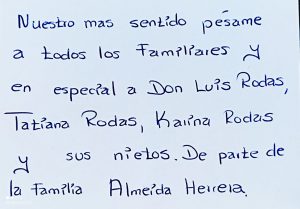 Nuestro mas sentido pésame
a todos los Familiares y
en especial a Don Luis Rodas,
Tatiana Rodas, Karina Rodas
y sus nietos. De parte de
la Familia Almeida Herrera.